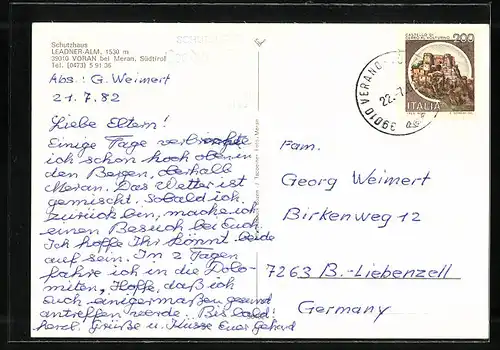 Schutzhaus
LEADNER-ALM, 1530 m
39010 VÖRAN bei Meran, Südtirol
Tel. (0473) 5 91 36
Abs: G. Weimert
21.7.82
Liebe Eltern!
Einige Tage verbrachte
ich schon hoch oben in
den Bergen, oberhalb
Meran. Das Wetter ist
gemischt. Sobald ich
zurück bin, mache ich
einen Besuch bei Euch.
Ich hoffe Ihr könnt beide
auf sein. In 2 Tagen
fahre ich in die Dolo-
miten, Hoffe, daß ich
Euch einigermaßen gesund
antreffen werde. Bis bald!
herzl. Grüße u. Küsse Euer Gehard
CASTELLO DI
CERRO AL VOLTURNO
200
ITALIA
39010 VERANO
22.7.
Fam.
Georg Weimert
Birkenweg 12
7263 B.-Liebenzell
Germany